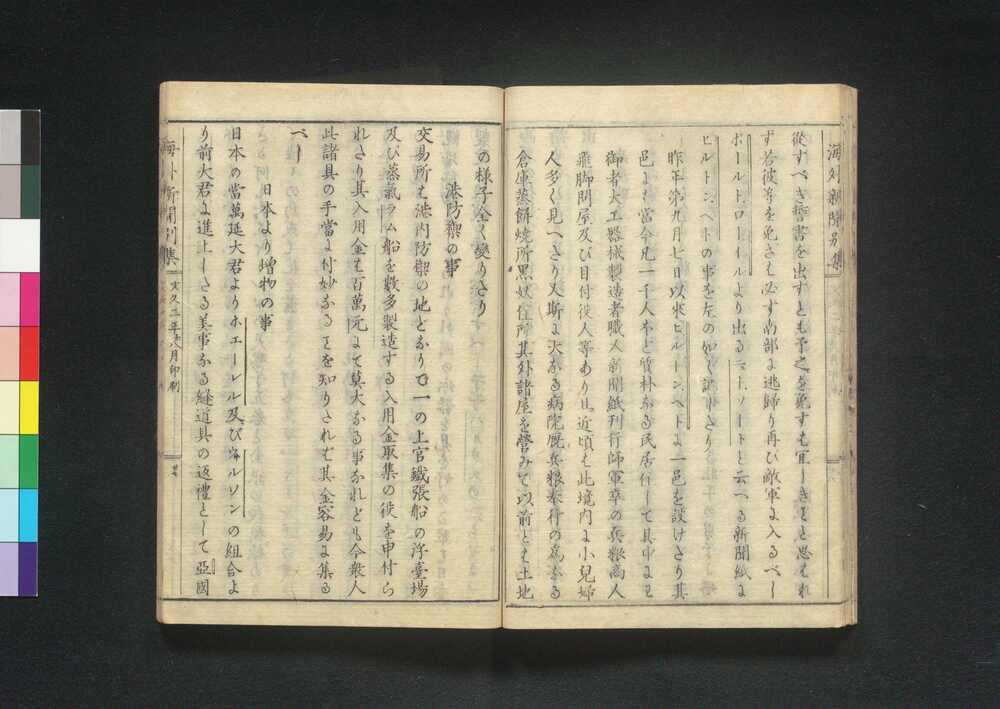 海外新聞別集
從すべき誓書を出すとも予之を免すも宜しきことと思はれ
ず若彼等を免さは必す南部に逃歸り再び敵軍に入るべし
ポールトローイールより出るニートソートと云へる新聞紙に
ヒルトンヘトの事を左の如く記したり
昨年第九月七日以來ヒルトーンヘトに一邑を設けたり其
邑には當今凡一千人ほど質朴なる民居住して其中には
御者大工器械製造者職人新聞紙刊行師軍卒の兵粮商人
飛脚問屋及び目付役人等あり又近頃は此境内に小兒婦
人多く見へたり又斯に大なる病院厩兵粮奉行の爲なる
倉庫蒸餅燒所黒奴住所其外諸屋を營みて以前とは土地
の様子全く變りたり
港防禦の事
交易所は港内防禦の地となりて一の上官鐵張船の浮臺場
及び蒸氣ラム船を數多製造する入用金取集の役を申付ら
れたり其入用金は百萬元にて莫大なる事なれども今衆人
此諸具の手當に付妙なることを知りたれば其金容易に集る
べし
日本より増物の事
日本の當萬延大君よりホエールル及びホルソンの組合よ
り前大君に進上したる美事なる縫道具の返禮として亞國
海外新聞別集
文久二年八月印刻
廿七